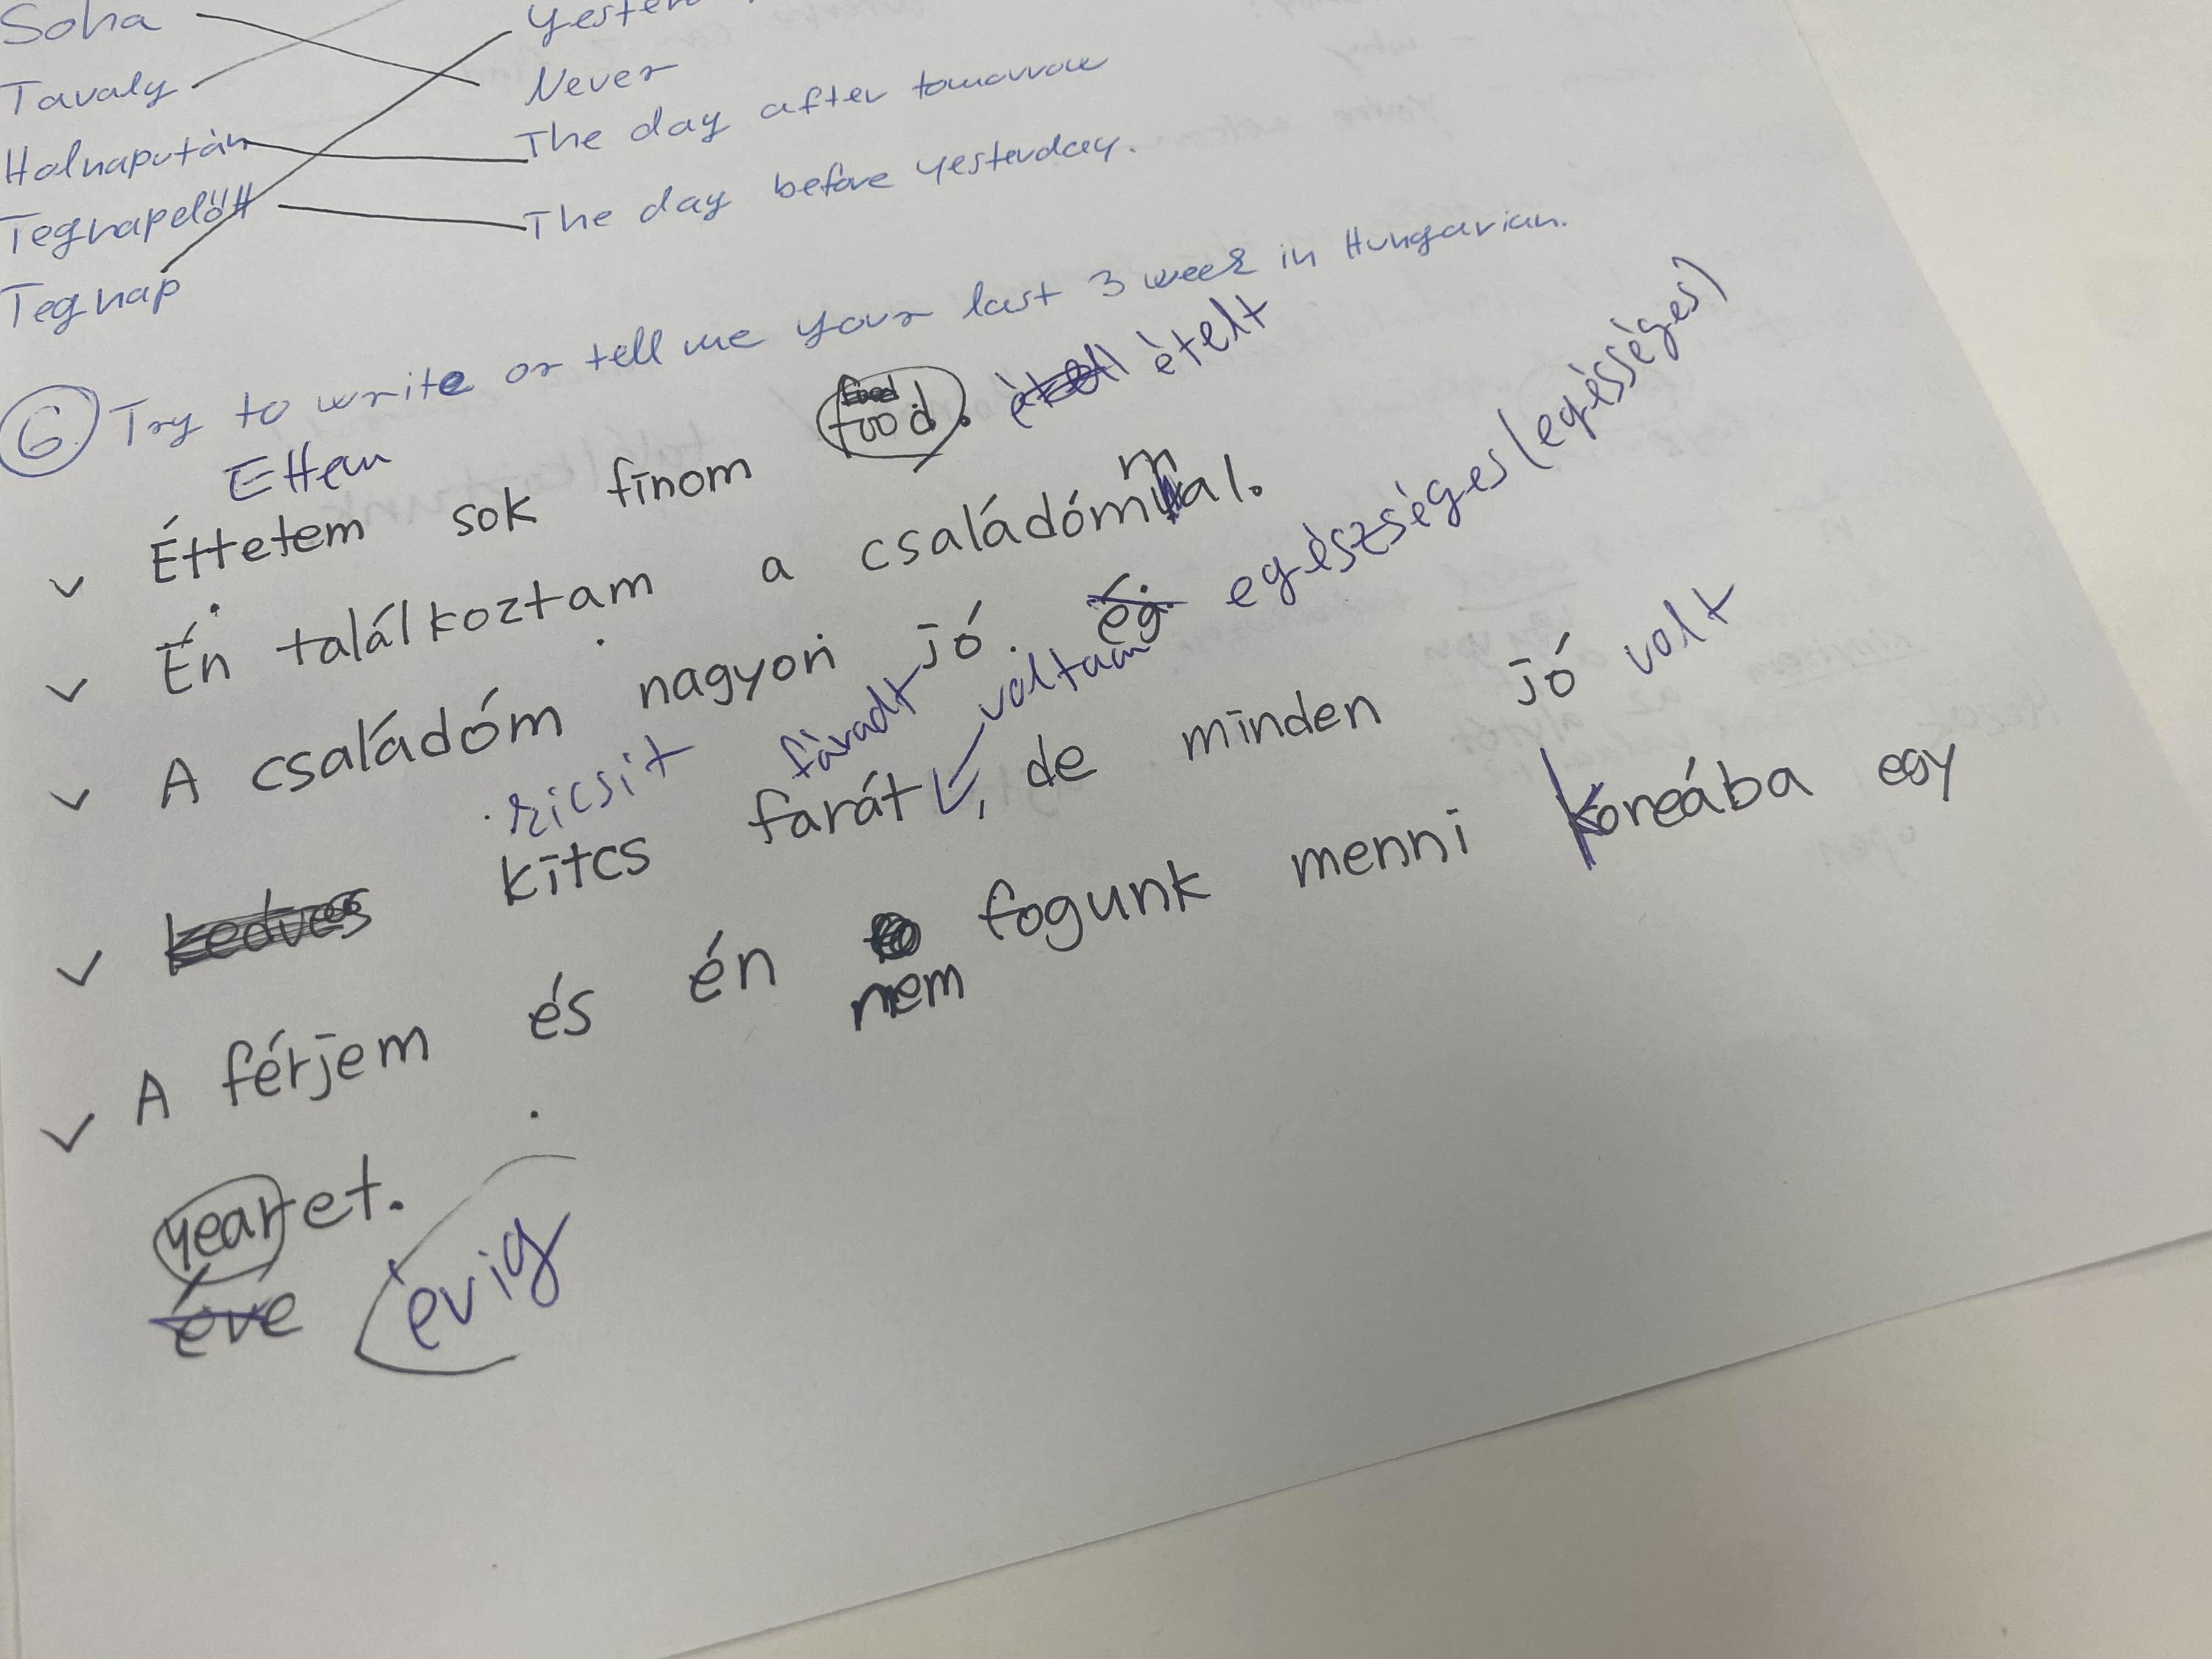 Soha
Never
Tavaly
The day after tomorrow
Holnapután
The day before yesterday.
Tegnapelőtt
Tegnap
6 Try to write or tell me your last 3 week in Hungarian.
Ettem
food. ételt
Éttetem sok finom
m
Én találkoztam a családómal.
egészséges (egésséges)
A családóm nagyon jó. ég.
kicsit fáradt voltam
kitcs farát, de minden jó volt
kedves
A férjem és én nem fogunk menni Koreába egy
yearet.
éve évig